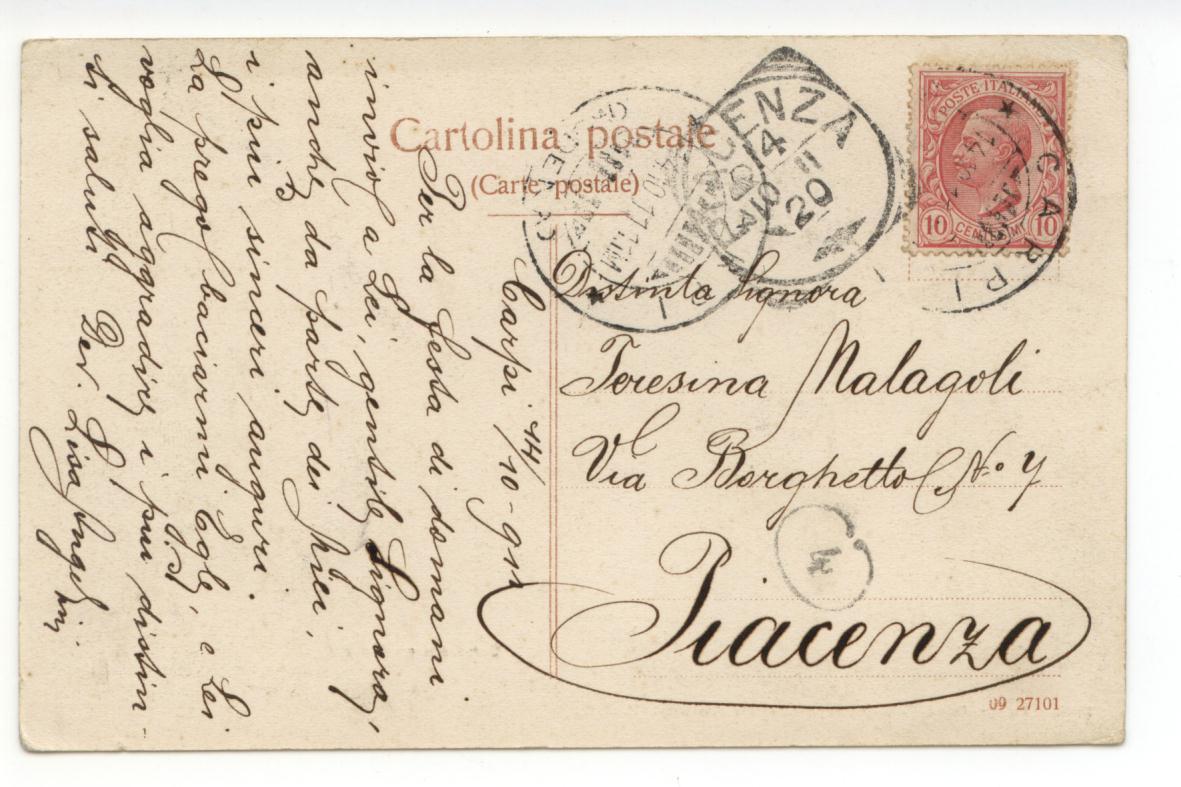 Cartolina postale
(Carte postale)
POSTE ITALIANE
10 CENTESIMI 10
CARPI
PIACENZA
14
11
20
Distinta Signora
Teresina Malagoli
Via Borghetto N.º 7
Piacenza
4
09 27101
Carpi 14/10-911
Per la festa di domani
invio a Lei, gentile Signora,
anche da parte dei miei,
i più sinceri auguri.
La prego baciarmi Egle, e Lei
voglia aggradire i più distin-
ti saluti
Dev. Lisa